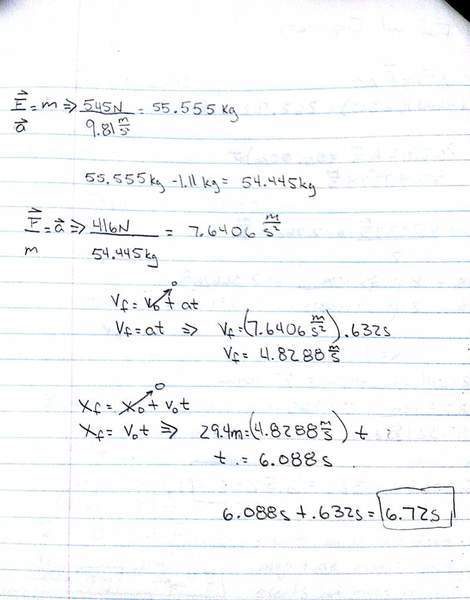 F⃗/a⃗ = m ⇒ 545N/9.81 m/s = 55.555 kg
55.555 kg - 1.11 kg = 54.445 kg
F⃗/m = a⃗ ⇒ 416N/54.445kg = 7.6406 m/s²
0
Vf = V₀ + at
Vf = at ⇒ Vf = (7.6406 m/s²) .632s
Vf = 4.8288 m/s
0
Xf = X₀ + V₀t
Xf = V₀t ⇒ 29.4m = (4.8288 m/s) t
t = 6.088 s
6.088s + .632s = 6.72s